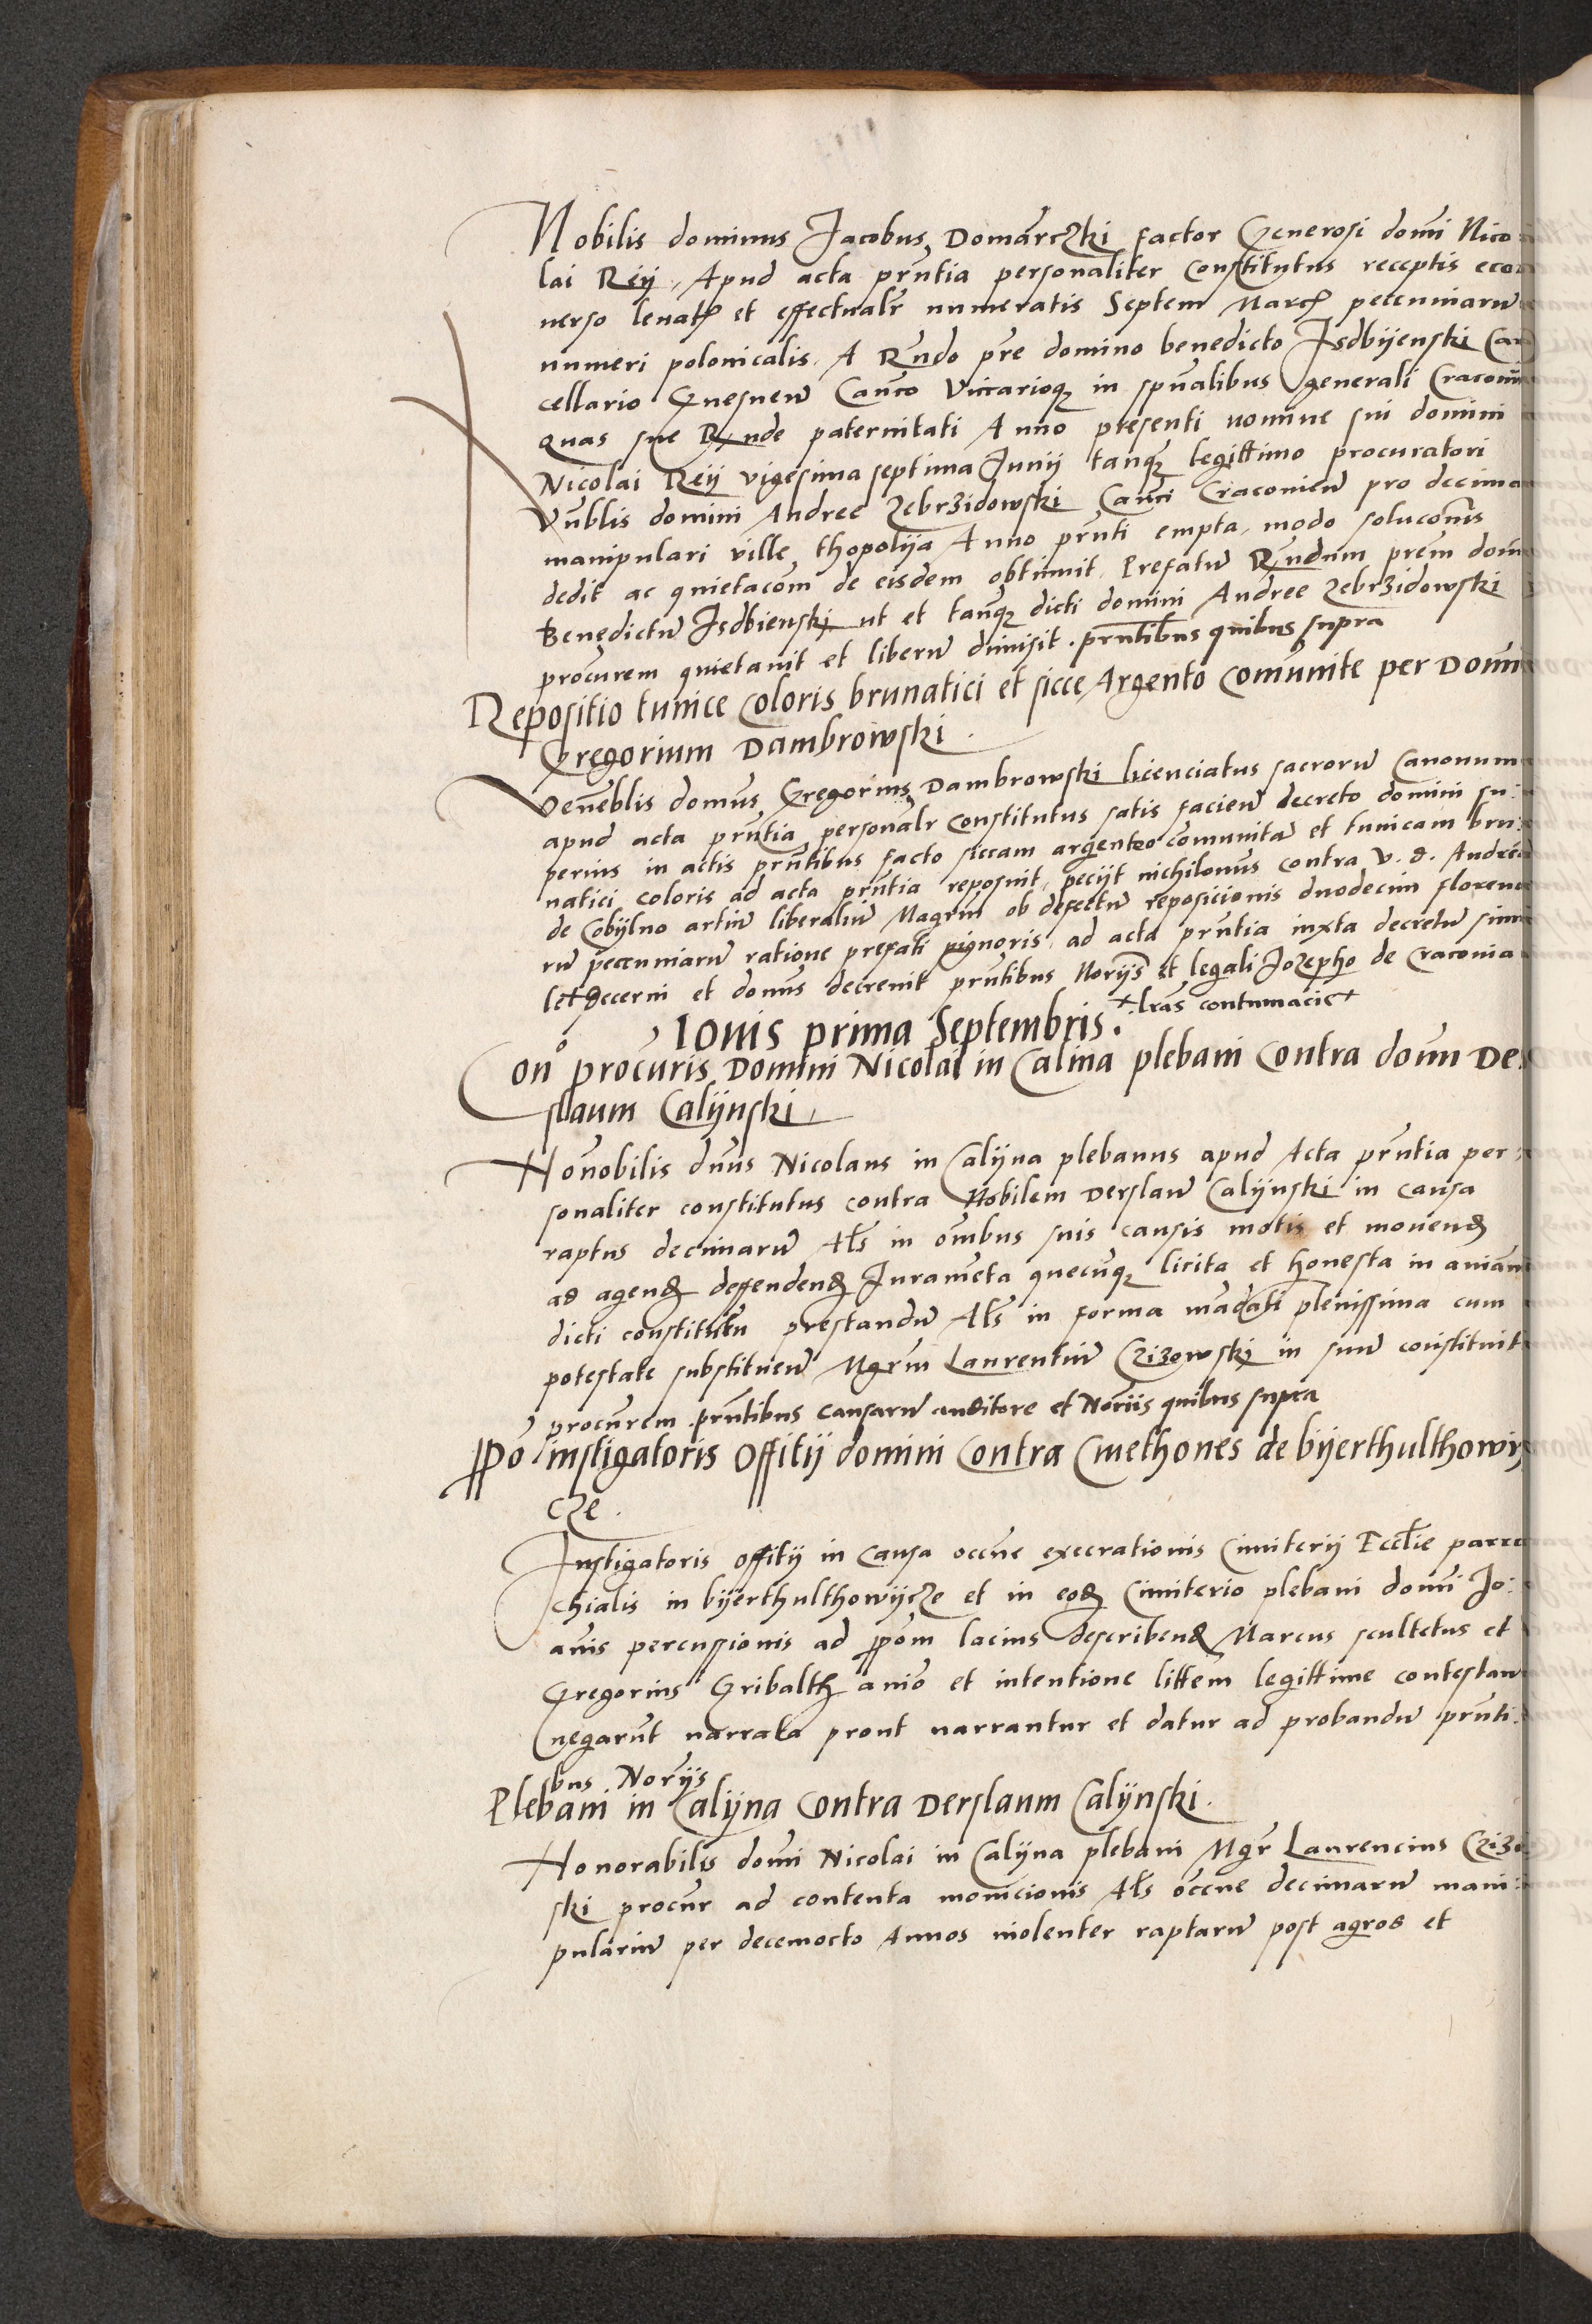 Nobilis dominus Jacobus Domarczki factor Generosi domi Nico
lai Reij Apud acta prntia personaliter Constitutus receptis eco
nerso leuat et effectualr numeratis Septem March pecuniaru
numeri polonicalis. A Rndo pre domino benedicto Jsdbijenski Can
cellario Gnesnen Canco Vicarioq in spualibus generali Cracouien
quas sue Rnde paternitati Anno presenti nomine sui domini
Nicolai Reij vigesima septima Junij tanq legittimo procuratori
Vnblis domini Andree Zebrzidowski Canci Cracouien pro decima
manipulari ville thopolija Anno prnti empta, modo solucois
dedit ac quietacom de eisdem obtinuit. Prefatu Rndum prem dom
Benedictu Jsdbienski ut et tanq dicti domini Andree Zebrzidowski
procurem quietauit et liberu dimisit. prntibus quibus supra
Repositio tunice Coloris brunatici et sicce Argento Comunite per Domi
Gregorium Dambrowski.
Veneblis domus Gregorius Dambrowski licenciatus sacroru Canonum
apud acta prntia personalr Constitutus satis facien decreto domini su
perius in actis prntibus facto siccam argento comunita et tunicam bru:
natici coloris ad acta prntia reposuit, pecijt nichilomus contra V. d. Andrea
de Cobijlno artiu liberaliu Magrm ob defectu reposicionis duodecim floreno
ru pecuniaru ratione prefati pignoris, ad acta prntia iuxta decretu simi
let + decerni et domus decreuit prntibus Norijs et legali Jozepho de Cracouia
+ lras contumacie +
Iouis prima Septembris.
Cono procuris Domini Nicolai in Calina plebani Contra domi De
slaum Calijnski.
Honobilis dnus Nicolaus in Calijna plebanus apud Acta prntia per
sonaliter constitutus contra Nobilem Derslau Calijnski in causa
raptus decimaru Als in ombus suis causis motis et mouend
ad agend deffendend Iurameta quecuq licita et honesta in aniam
dicti constituetn prestandu Als in forma madati plenissima cum
potestate substituen Mgrm Laurentiu Czizowski in suu constituit
procurem. prntibus causaru auditore et Noriis quibus supra
PPo instigatoris Offitij domini Contra Cmethones de bijerthulthowij
cze.
Instigatoris offitij in Causa occne execrationis Cimiterij Ecclie parro
chialis in bijerthulthowijcze et in eod Cimiterio plebani domi Jo:
anis percussionis ad ppom lacius describend Marcus scultetus et
Gregorius Gribalth anio et intentione littem legittime contestan
negarut narrata prout narrantur et datur ad probandu prnti:
bus Norijs
Plebani in Calijna Contra Derslaum Calijnski.
Honorabilis domi Nicolai in Calijna plebani Mgr Laurencius Czizo
ski procur ad contenta monicionis Als occne decimaru mani:
pulariu per decemocto Annos violenter raptaru post agros et